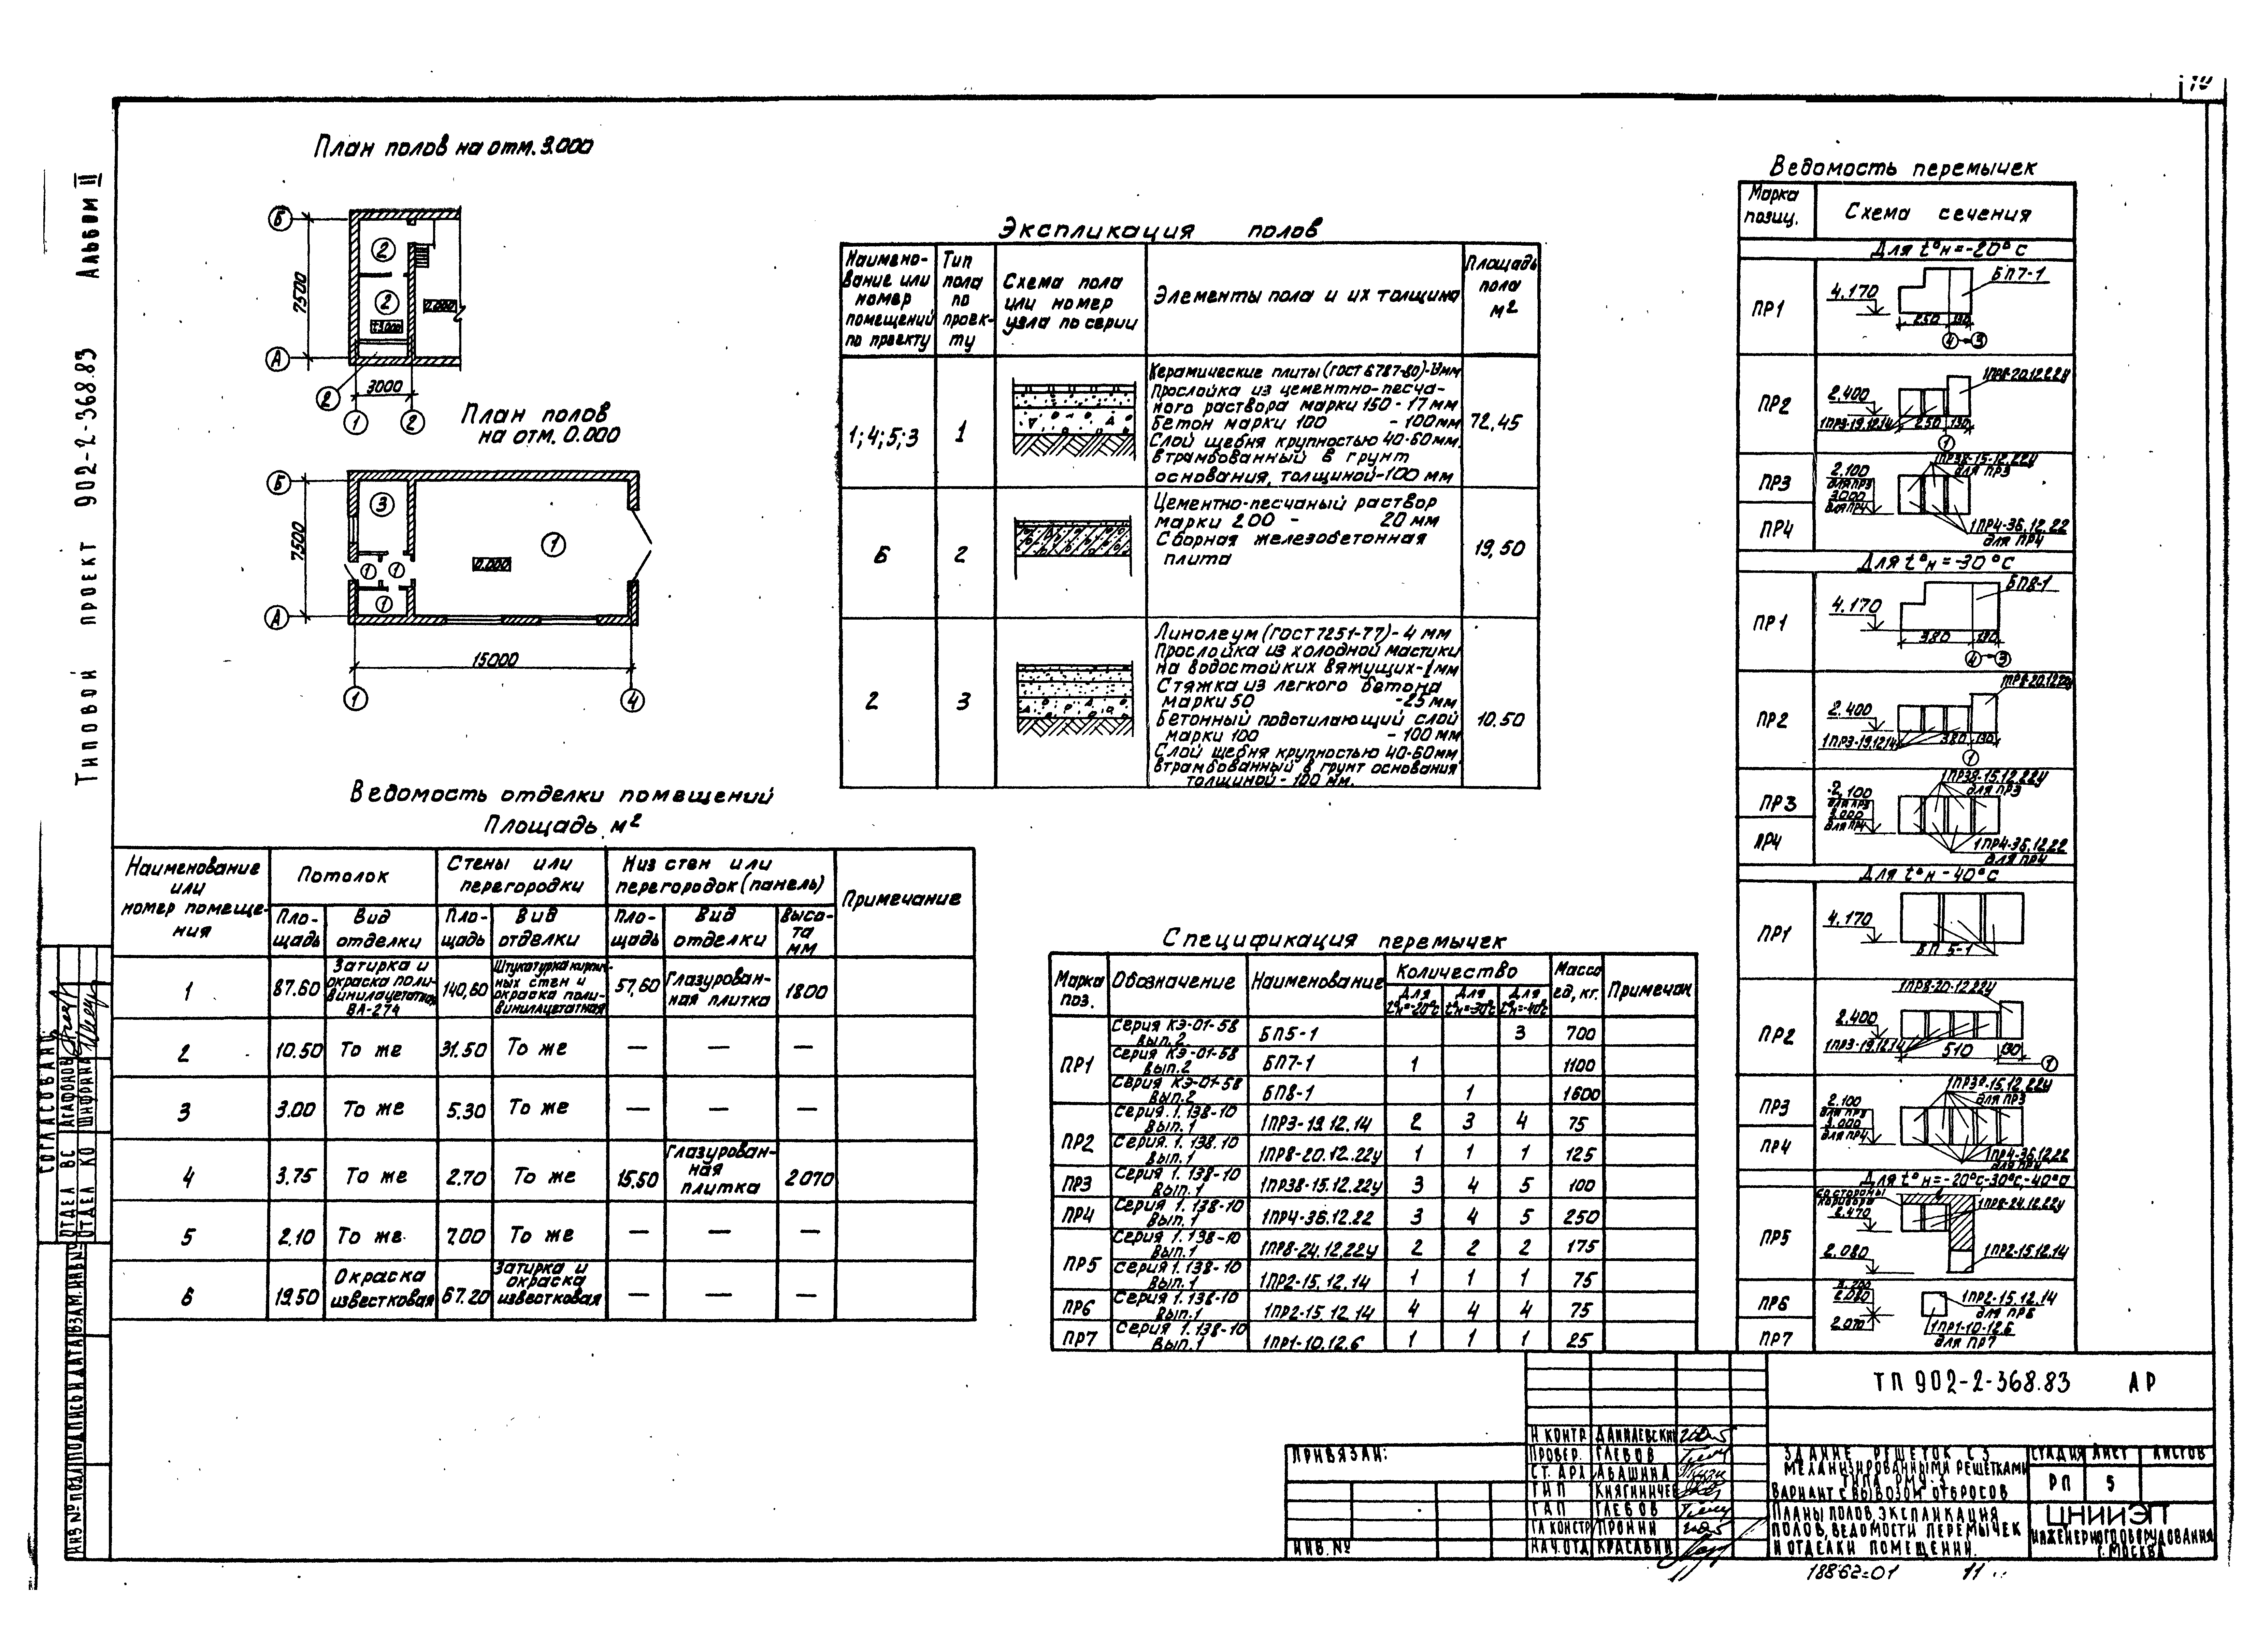 План полов на отм. 3.000
Б
А
7500
2
2
3.000
0.000
3000
2
1
2
План полов
на отм. 0.000
Б
А
7500
3
1
1
1
1
0.000
15000
1
4
Типовой проект 902-2-368.83 Альбом II
Экспликация полов
Наимено-
вание или
номер
помещений
по проекту
Тип
пола
по
проек-
ту
Схема пола
или номер
узла по серии
Элементы пола и их толщина
Площадь
пола
м2
1;4;5;3
1
Керамические плиты (ГОСТ 6787-80)-13мм
Прослойка из цементно-песча-
ного раствора марки 150 - 17 мм
Бетон марки 100 - 100мм
Слой щебня крупностью 40-60мм.
втрамбованный в грунт
основания, толщиной-100 мм
72,45
6
2
Цементно-песчаный раствор
марки 200 - 20 мм
Сборная железобетонная
плита
19,50
2
3
Линолеум (ГОСТ 7251-77)- 4 мм
Прослойка из холодной мастики
на водостойких вяжущих-1мм
Стяжка из легкого бетона
марки 50 -25 мм
Бетонный подстилающий слой
марки 100 - 100 мм
Слой щебня крупностью 40-60мм
втрамбованный в грунт основания
толщиной - 100 мм.
10.50
Ведомость отделки помещений
Площадь м2
Наименование
или
номер помеще-
ния
Потолок
Стены или
перегородки
Низ стен или
перегородок (панель)
Примечание
Пло-
щадь
Вид
отделки
Пло-
щадь
Вид
отделки
Пло-
щадь
Вид
отделки
Высо-
та
мм
1
87.60
Затирка и
окраска поли-
винилацетатная
ВА-274
140,60
Штукатурка кирпич-
ных стен и
окраска поли-
винилацетатная
57,60
Глазурован-
ная плитка
1800
2 10.50 То же 31.50 То же — — —
3 3.00 То же 5.30 То же — — —
4 3.75 То же 2.70 То же 15.50
Глазурован-
ная
плитка
2070
5 2.10 То же 7.00 То же — — —
6 19.50
Окраска
известковая
67.20
Затирка и
окраска
известковая
— — —
Спецификация перемычек
Марка
поз.
Обозначение
Наименование
Количество
Для
t°н=-20°с
Для
t°н=-30°с
Для
t°н=-40°с
Масса
ед, кг.
Примечан
ПР1
Серия КЭ-01-58
вып. 2
БП5-1 3 700
Серия КЭ-01-58
вып.2
БП7-1 1 1100
Серия КЭ-01-58
вып.2
БП8-1 1 1600
ПР2
Серия. 1. 138-10
вып. 1
1ПР3-19.12.14 2 3 4 75
Серия. 1. 138.10
вып.1
1ПР8-20.12.22у 1 1 1 125
ПР3
Серия 1. 138-10
вып.1
1ПР38-15.12.22у 3 4 5 100
ПР4
Серия 1. 138-10
вып.1
1ПР4-36.12.22 3 4 5 250
ПР5
Серия 1. 138-10
вып.1
1ПР8-24.12.22у 2 2 2 175
Серия 1. 138-10
вып. 1
1ПР2-15.12.14 1 1 1 75
ПР6
Серия 1. 138-10
вып.1
1ПР2-15.12.14 4 4 4 75
ПР7
Серия 1. 138-10
вып.1
1ПР1-10.12.6 1 1 1 25
Ведомость перемычек
Марка
позиц.
Схема сечения
Для t°н=-20°с
ПР1
4.170
БП7-1
250
4
3
ПР2
2.400
1ПР8-20.12.22у
1ПР3-19.12.14
250 130
1
ПР3
ПР4
2.100
для ПР3
3.000
для ПР4
1ПР38-15.12.22у
для ПР3
1ПР4-36.12.22
для ПР4
Для t°н=-30°С
ПР1
4.170
БП8-1
380
4
3
ПР2
2.400
1ПР3-19.12.14
380 130
1
ПР3
ПР4
2.100
для ПР3
3.000
для ПР4
1ПР38-15.12.22у
для ПР3
1ПР4-36.12.22
для ПР4
Для t°н - 40°с
ПР1
4.170
БП 5-1
ПР2
2.400
1ПР8-20.12.22у
1ПР3-19.12.14
510 130
1
ПР3
ПР4
2.100
для ПР3
3.000
для ПР4
1ПР38-15.12.22у
для ПР3
1ПР4-36.12.22
для ПР4
Для t°н=-20°с-30°с,-40°с
ПР5
со стороны
коридора
2.470
2.080
1ПР8-24.12.22у
1ПР2-15.12.14
ПР6
ПР7
2.080
2.070
1ПР2-15.12.14
для ПР6
1ПР1-10-12.6
для ПР7
СОГЛАСОВАНО:
ОТДЕЛ ВС АГАФОНОВ
ОТДЕЛ КО ШИФРИНА
ИНВ № ПОДЛ ПОДПИСЬ И ДАТА ВЗАМ. ИНВ №
ПРИВЯЗАН:
ИНВ. №
Н КОНТР ДАНИЛЕВСКИЙ
ПРОВЕР. ГЛЕБОВ
СТ. АРХ АБАШИНА
ГИП КНЯГИНИЧЕВ
ГАП ГЛЕБОВ
ГЛ КОНСТР ПРОНИН
НАЧ. ОТД КРАСАВИН
ТП 902-2-368.83 АР
ЗДАНИЕ РЕШЕТОК С 3
МЕХАНИЗИРОВАННЫМИ РЕШЕТКАМИ
ТИПА РМУ-3
ВАРИАНТ С ВЫВОЗОМ ОТБРОСОВ
СТАДИЯ ЛИСТ ЛИСТОВ
РП 5
ПЛАНЫ ПОЛОВ, ЭКСПЛИКАЦИЯ
ПОЛОВ, ВЕДОМОСТИ ПЕРЕМЫЧЕК
И ОТДЕЛКИ ПОМЕЩЕНИЙ.
ЦНИИЭП
ИНЖЕНЕРНОГО ОБОРУДОВАНИЯ
Г. МОСКВА
18862-01 11